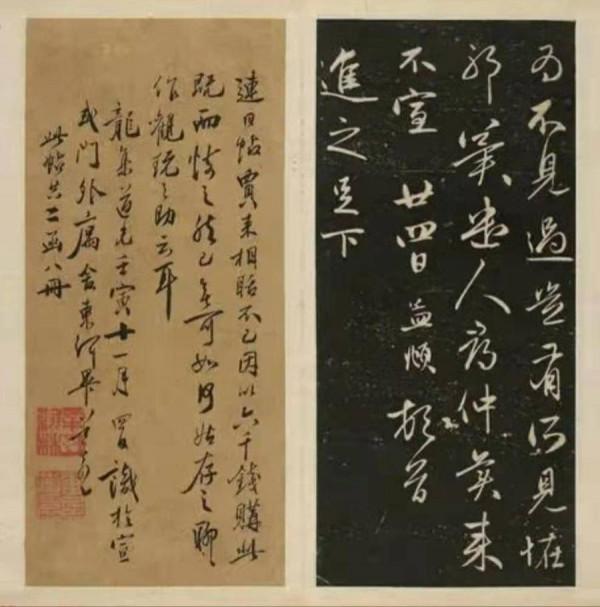 不見過豈有見
人為仲英来
不宣 廿四日 益順 頓首
進之足下
連日帖賈来相聒不已因以六千錢購此
既而悔之然已無可如何姑存之聊
作觀玩之助云耳
龍集道光壬寅十一月識於宣
武門外寓舍東
此帖共二函八冊